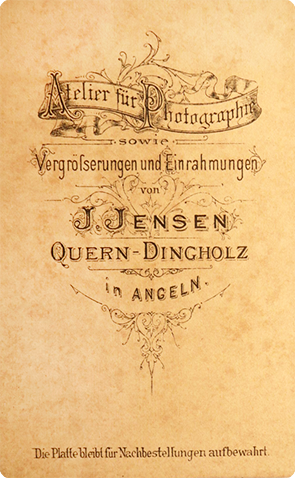 Atelier für Photographie
sowie
Vergröſserungen und Einrahmungen
von
J. JENSEN
QUERN-DINGHOLZ
in ANGELN.
Die Platte bleibt für Nachbestellungen aufbewahrt.